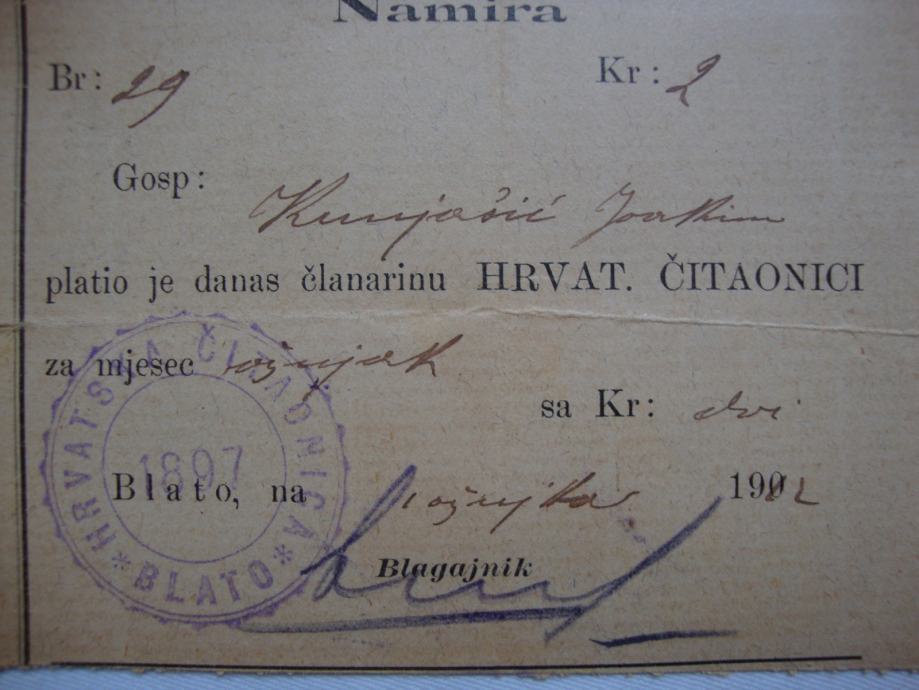 Namira
Br: 29 Kr: 2
Gosp:
Kunjašić Joakim
platio je danas članarinu HRVAT. ČITAONICI
za mjesec ožujak
sa Kr: dvi
Blato, na ožujka 1902
Blagajnik
HRVATSKA ČITAONICA
1897
* BLATO *